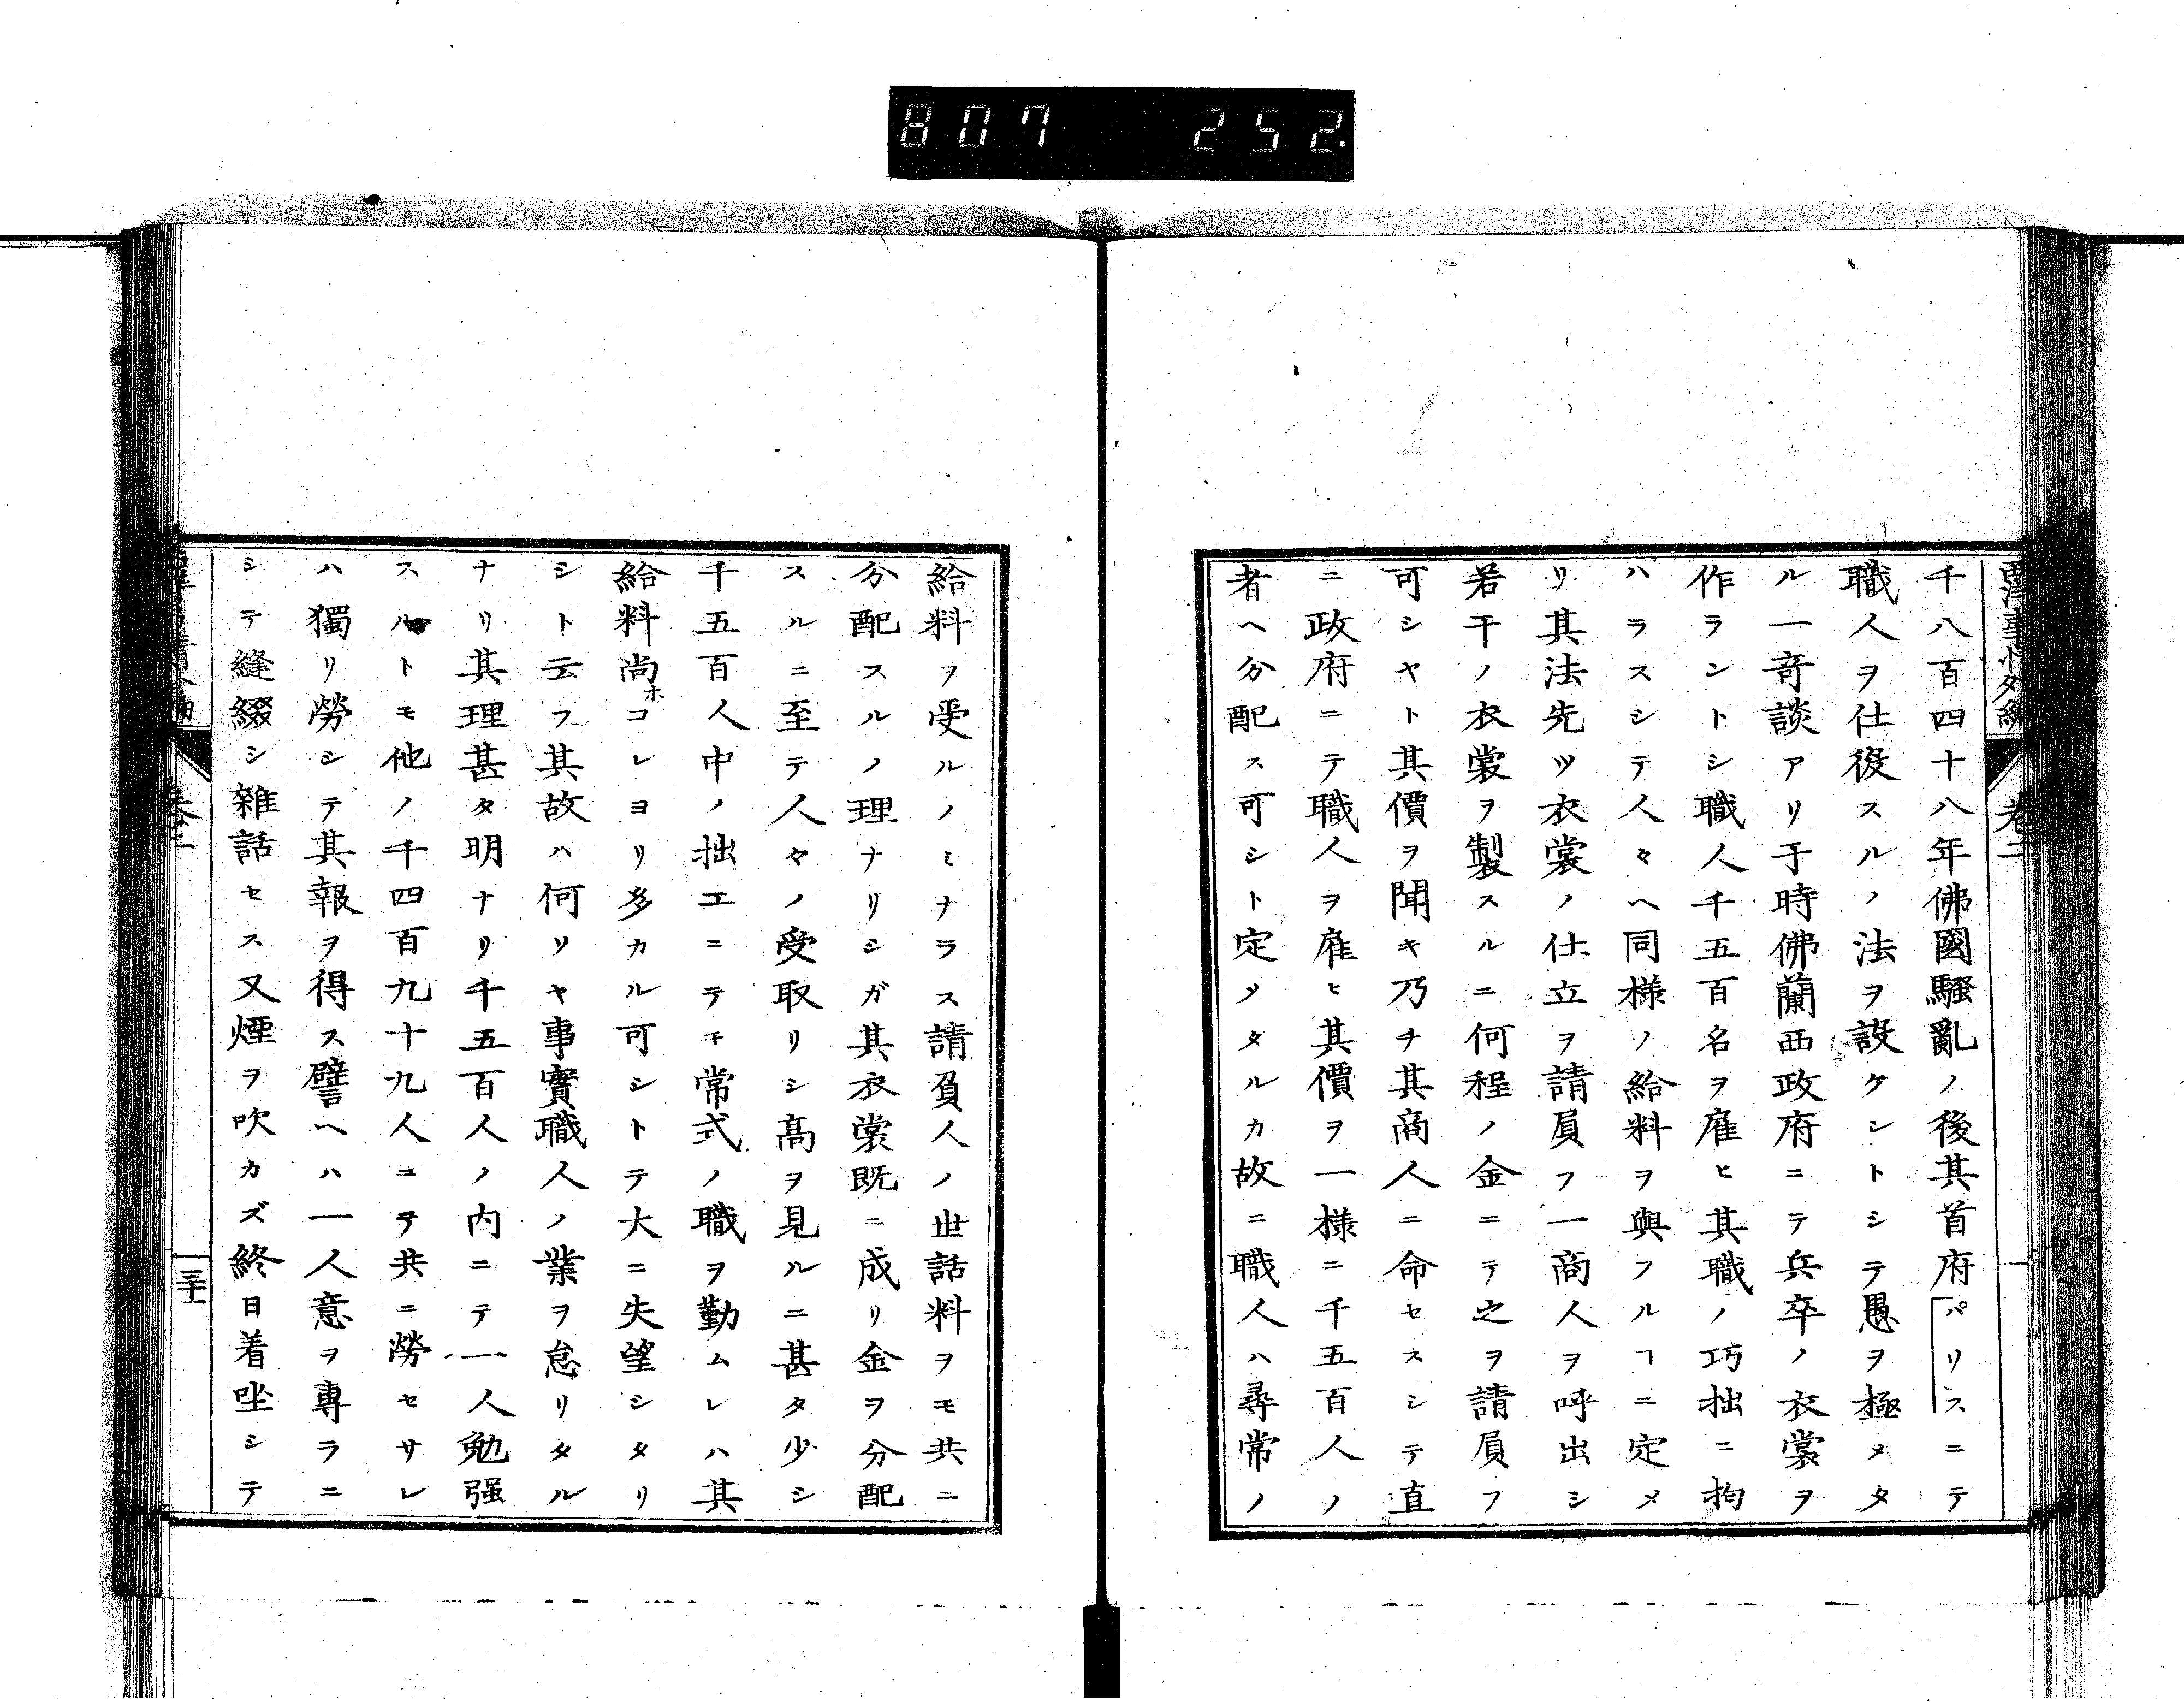 807 252.
西洋事情外編 卷二
千八百四十八年佛國騷亂ノ後其首府パリスニテ
職人ヲ仕役スルノ法ヲ設ケントシテ愚ヲ極メタ
ル一奇談アリ于時佛蘭西政府ニテ兵卒ノ衣裳ヲ
作ラントシ職人千五百名ヲ雇ヒ其職ノ巧拙ニ拘
ハラスシテ人々ヘ同樣ノ給料ヲ與フルヿニ定メ
リ其法先ツ衣裳ノ仕立ヲ請負フ一商人ヲ呼出シ
若干ノ衣裳ヲ製スルニ何程ノ金ニテ之ヲ請負フ
可シヤト其價ヲ聞キ乃チ其商人ニ命セスシテ直
ニ政府ニテ職人ヲ雇ヒ其價ヲ一樣ニ千五百人ノ
者ヘ分配ス可シト定メタルカ故ニ職人ハ尋常ノ
給料ヲ受ルノミナラス請負人ノ世話料ヲモ共ニ
分配スルノ理ナリシガ其衣裳既ニ成リ金ヲ分配
スルニ至テ人々ノ受取リシ髙ヲ見ルニ甚タ少シ
千五百人中ノ拙工ニテモ常式ノ職ヲ勤ムレハ其
給料尚ホコレヨリ多カル可シトテ大ニ失望シタリ
シト云フ其故ハ何ソヤ事實職人ノ業ヲ怠リタル
ナリ其理甚タ明ナリ千五百人ノ内ニテ一人勉强
スルトモ他ノ千四百九十九人ニテ共ニ勞セサレ
ハ獨リ勞シテ其報ヲ得ス譬ヘハ一人意ヲ專ラニ
シテ縫綴シ雜話セス又煙ヲ吹カズ終日着坐シテ
卷二
三十一